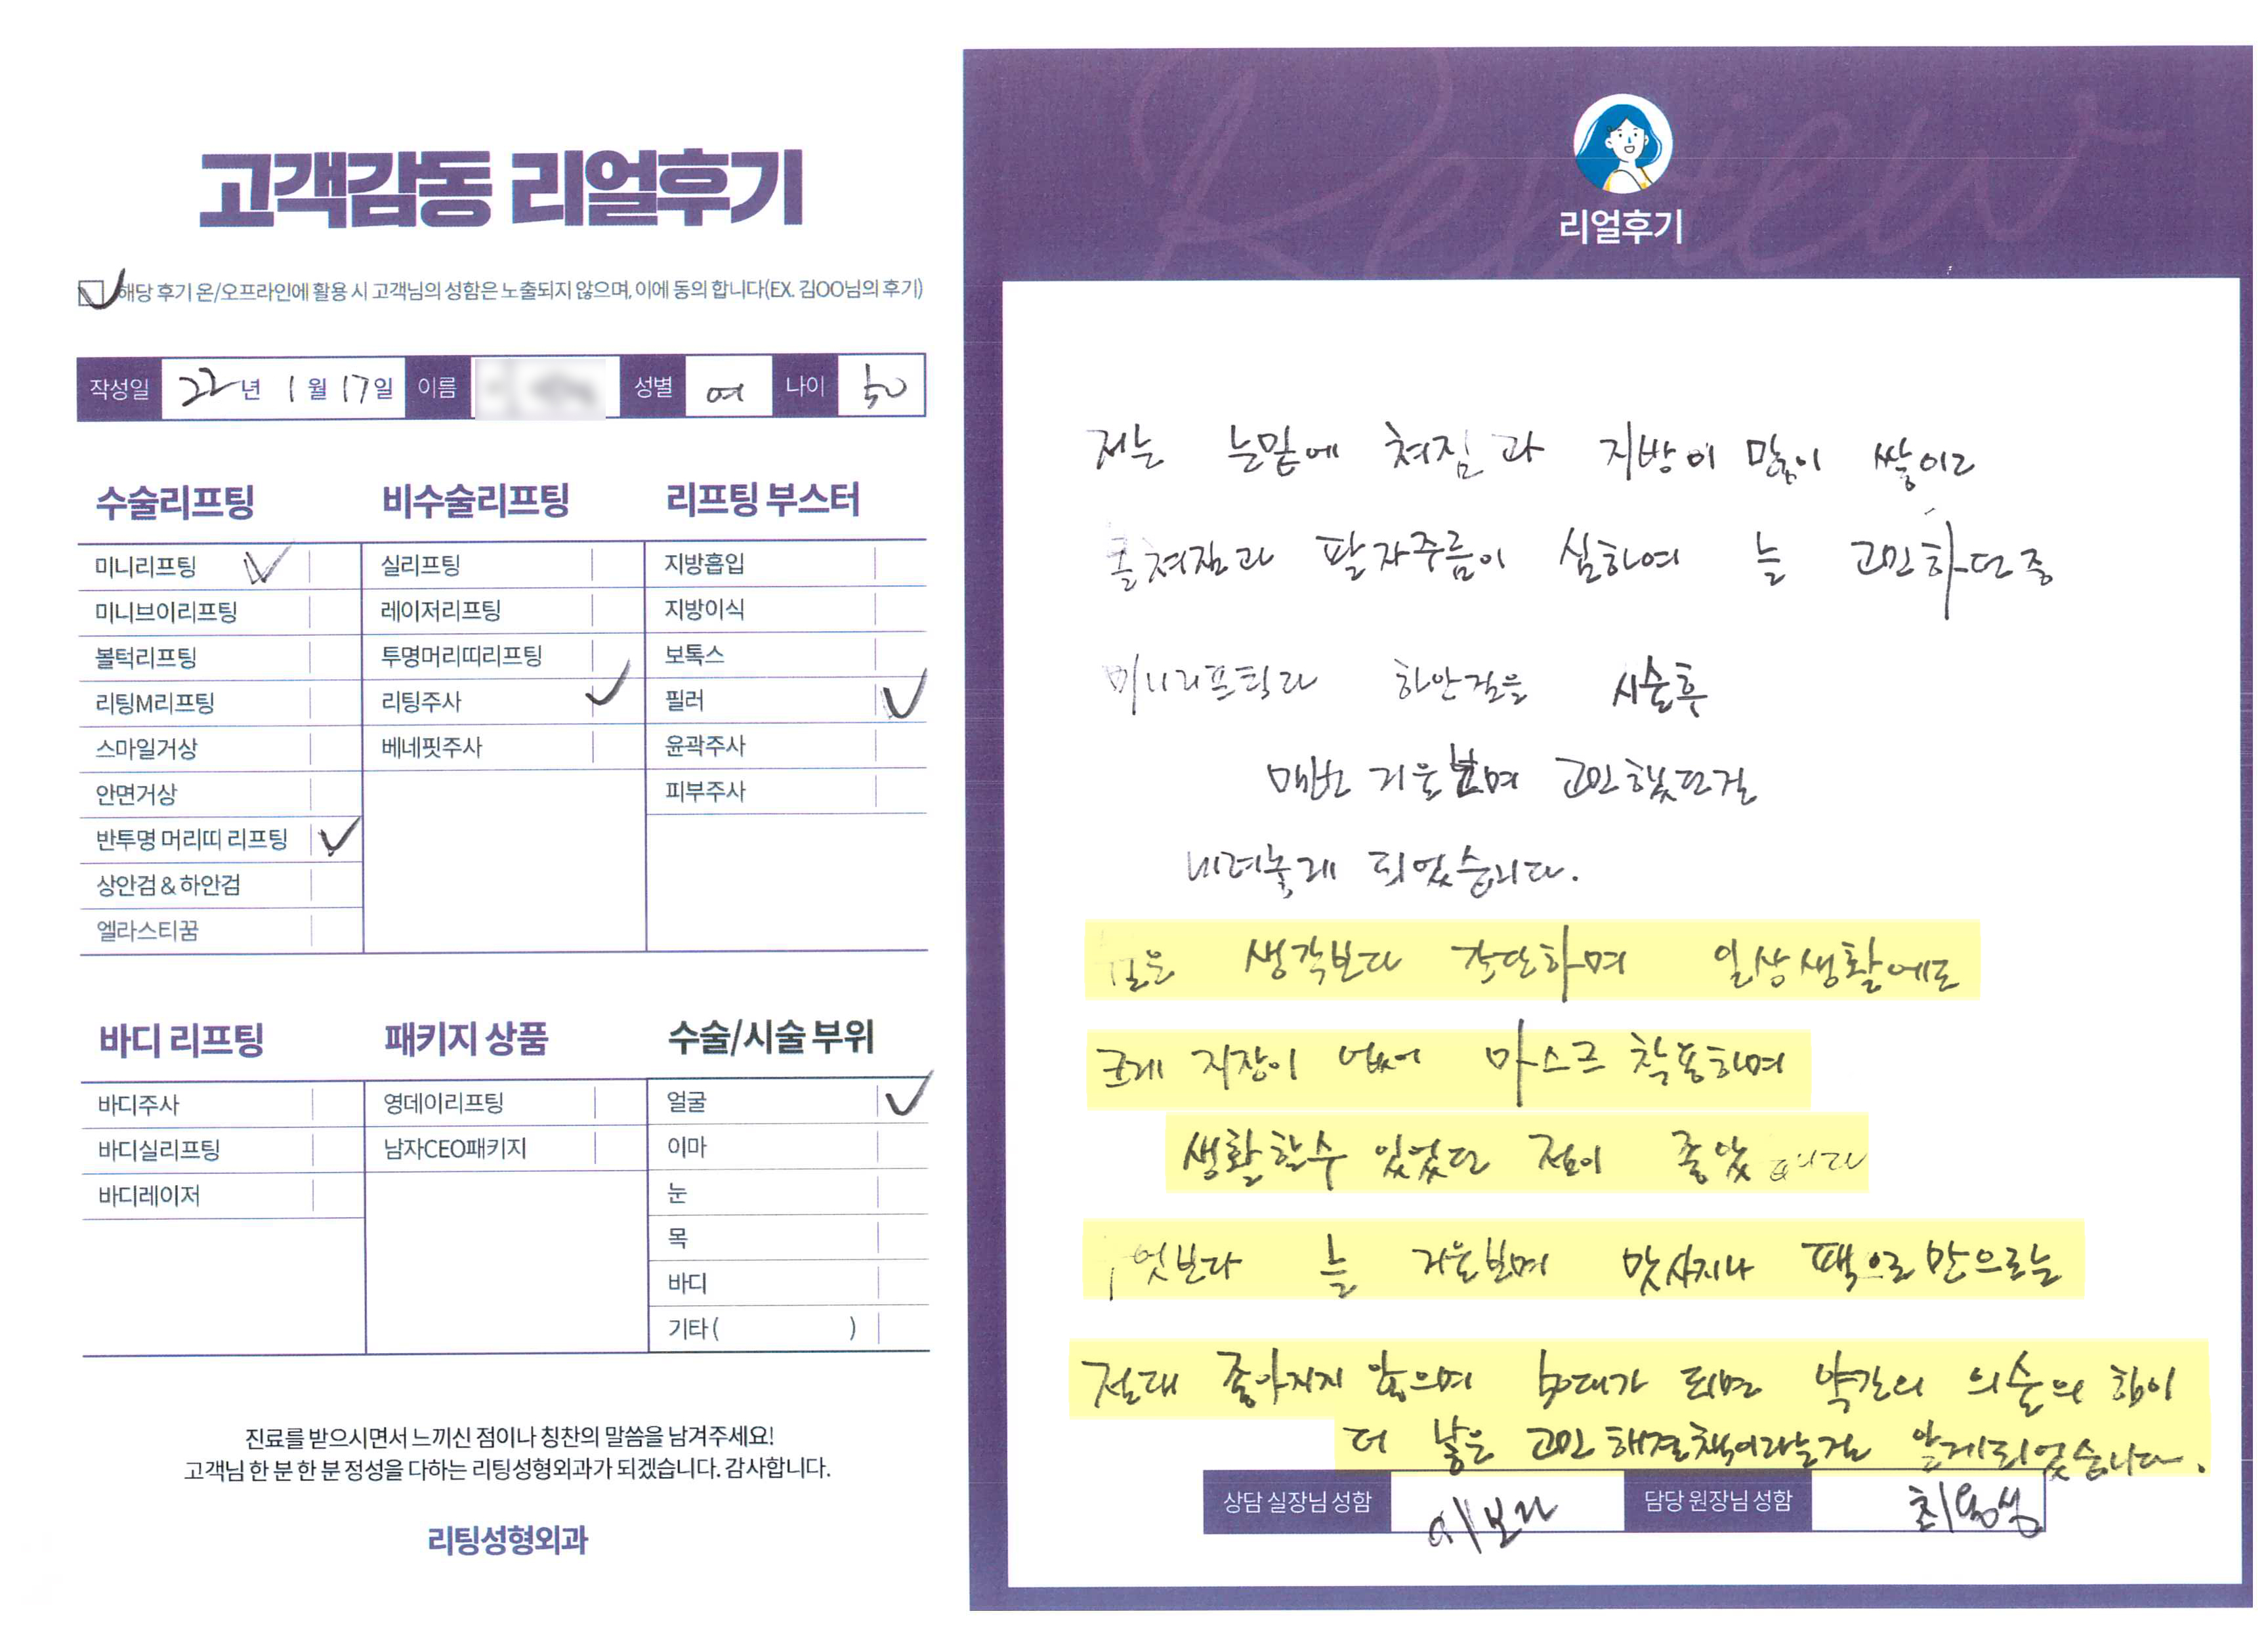 고객감동 리얼후기
해당 후기 온/오프라인에 활용 시 고객님의 성함은 노출되지 않으며, 이에 동의 합니다(EX. 김OO님의 후기)
작성일 22년 1월 17일 이름 성별 여 나이 50
수술리프팅
미니리프팅
미니브이리프팅
볼턱리프팅
리팅M리프팅
스마일거상
안면거상
반투명 머리띠 리프팅
상안검 & 하안검
엘라스티꿈
비수술리프팅
실리프팅
레이저리프팅
투명머리띠리프팅
리팅주사
베네핏주사
리프팅 부스터
지방흡입
지방이식
보톡스
필러
윤곽주사
피부주사
바디 리프팅
바디주사
바디실리프팅
바디레이저
패키지 상품
영데이리프팅
남자CEO패키지
수술/시술 부위
얼굴
이마
눈
목
바디
기타( )
진료를 받으시면서 느끼신 점이나 칭찬의 말씀을 남겨주세요!
고객님 한 분 한 분 정성을 다하는 리팅성형외과가 되겠습니다. 감사합니다.
리팅성형외과
Review
리얼후기
저는 눈밑에 쳐짐과 지방이 많이 쌓이고
볼쳐짐과 팔자주름이 심하여 늘 고민하던중
미니리프팅과 하안검을 시술후
매번 거울보며 고민했던걸
내려놓게 되었습니다.
생각보다 간단하며 일상생활에도
크게 지장이 없어 마스크 착용하며
생활할수 있었던 점이 좋았습니다
무엇보다 늘 거울보며 맛사지나 팩으로만으로는
절대 좋아지지 않으며 50대가 되면 약간의 의술의 힘이
더 낳은 고민 해결책이라는걸 알게되었습니다.
상담 실장님 성함 이보라 담당 원장님 성함